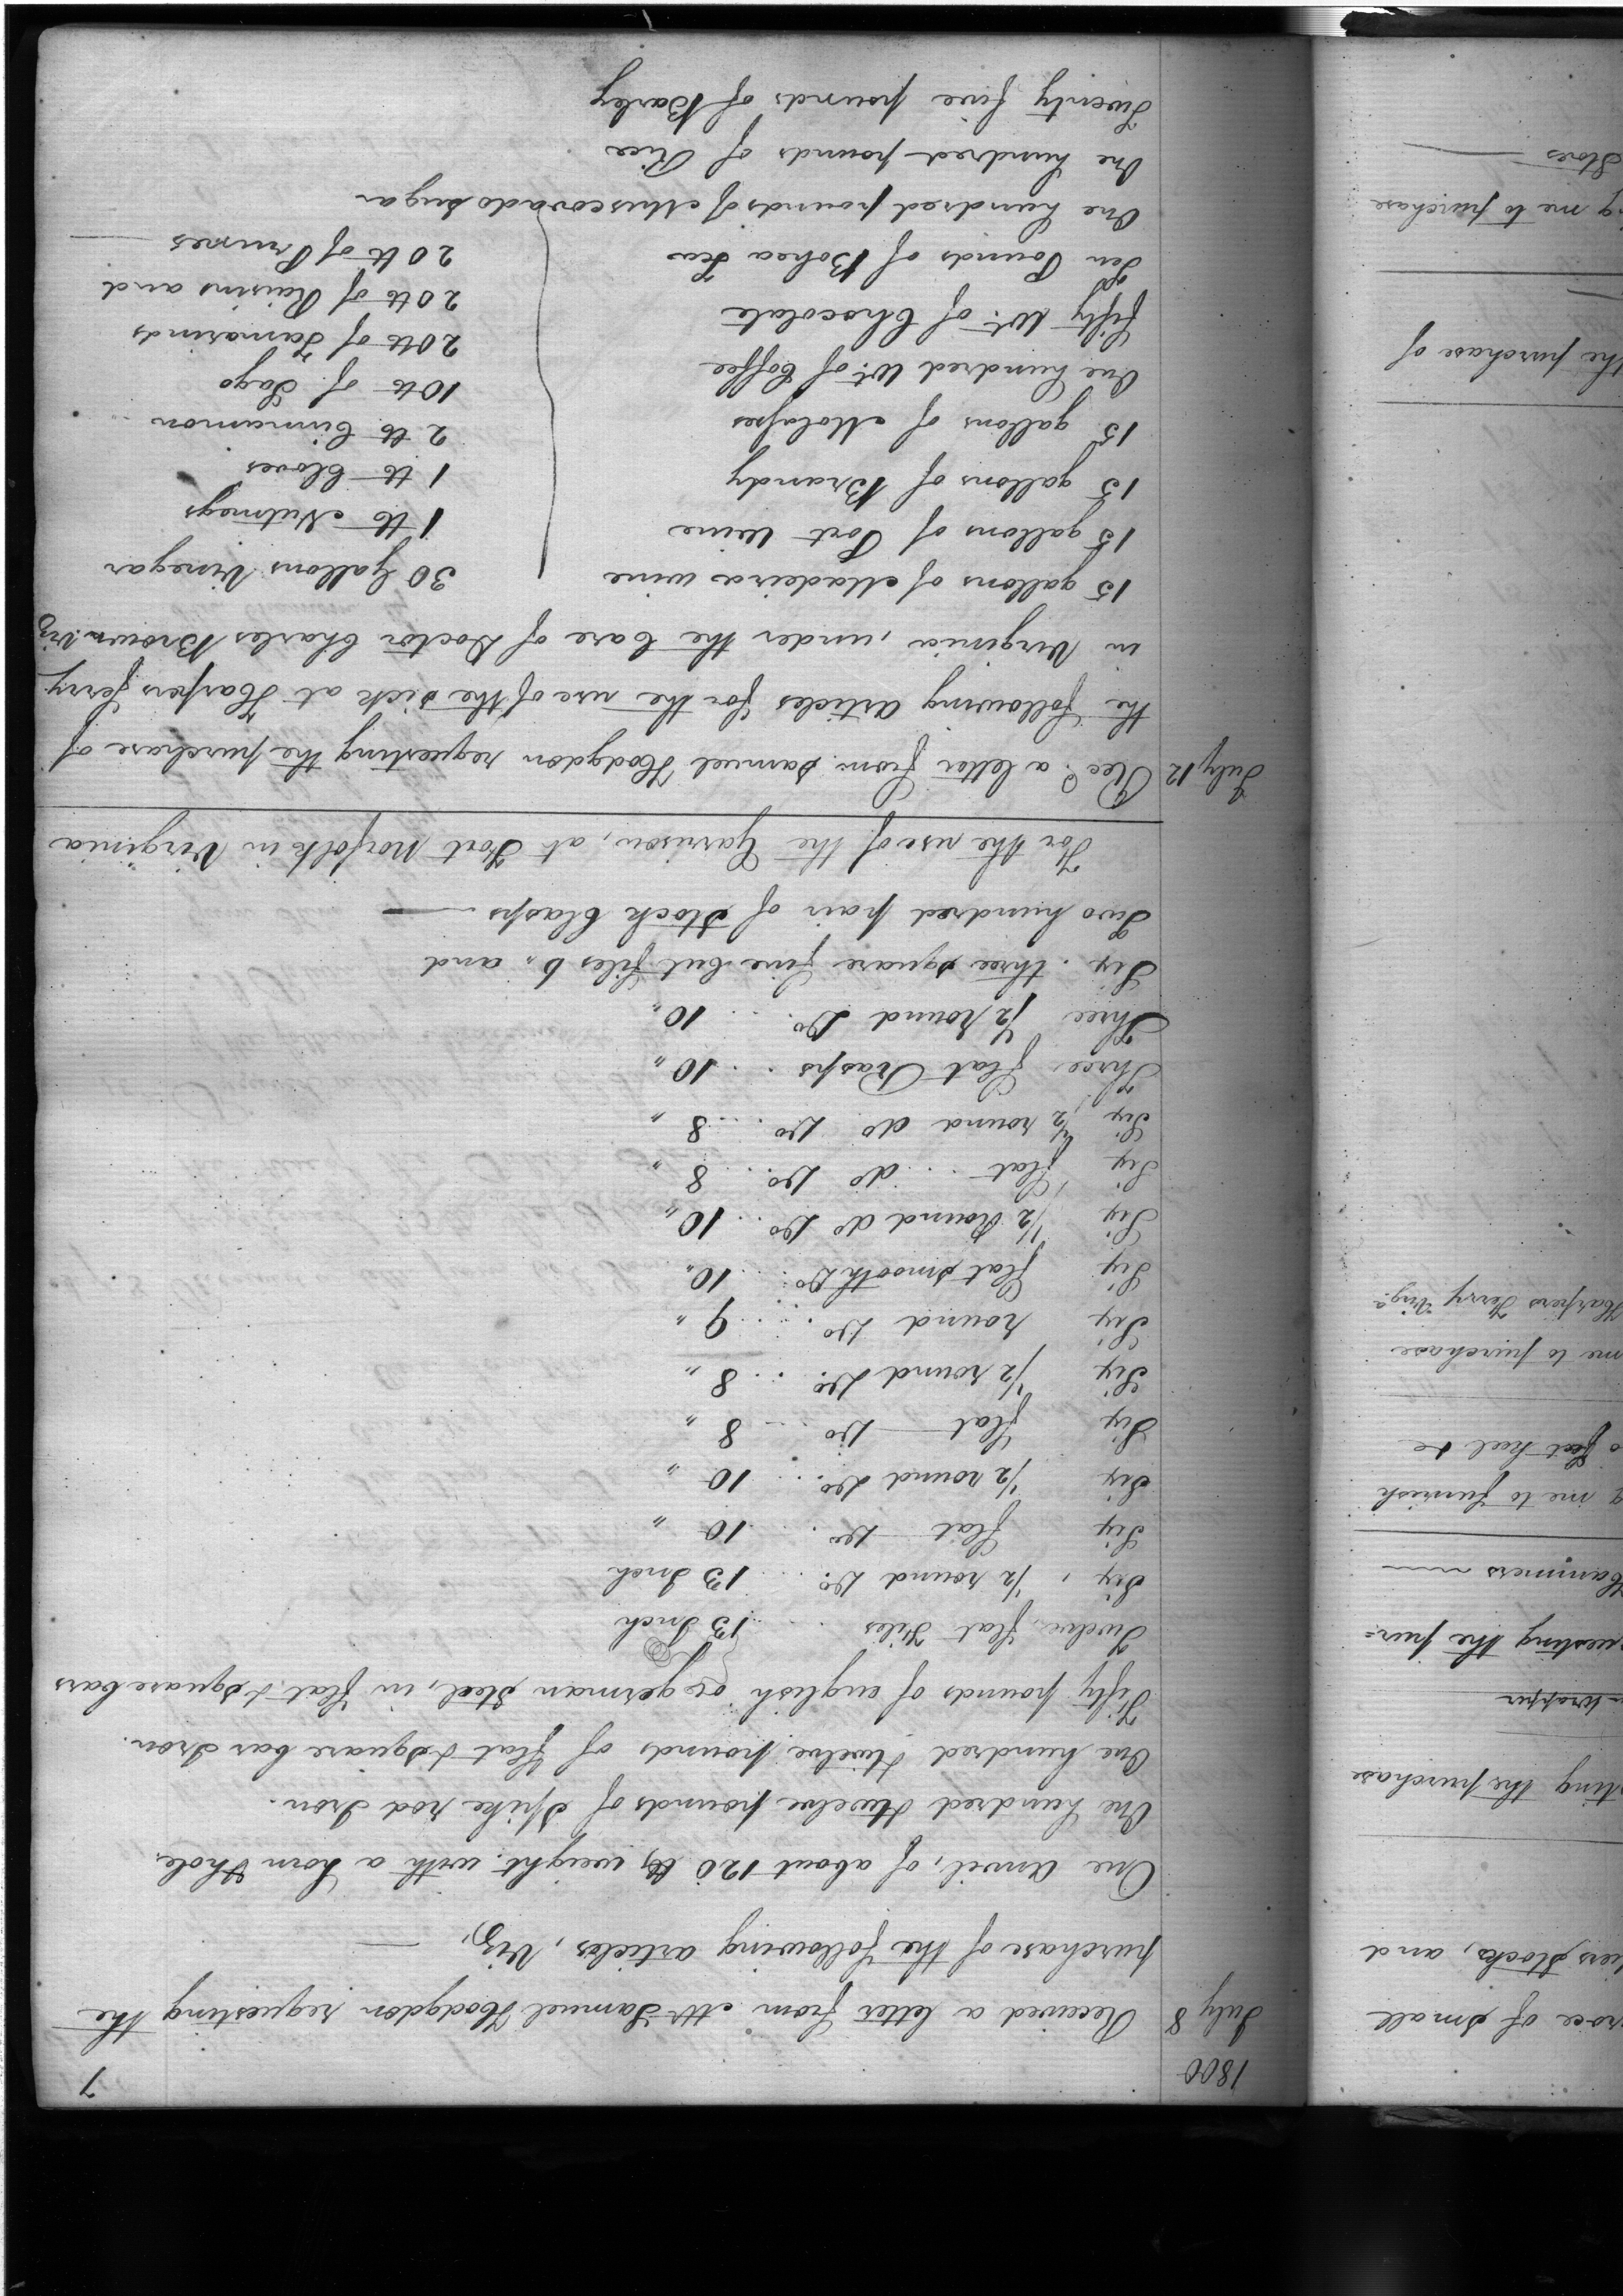 1800
7
July 8 Received a letter from Mr Samuel Hodgdon requesting the
purchase of the following articles, Viz,
One Anvil, of about 120 lb weight, with a horn & hole.
One hundred & twelve pounds of Spike rod Iron.
One hundred & twelve pounds of flat & square bar Iron.
Fifty pounds of english or german Steel, in flat & square bars
Twelve flat Files .. 13 Inch
Six, 1/2 round Do. ... 13 Inch
Six flat Do. ... 10 "
Six 1/2 round Do. ... 10 "
Six flat Do ... 8 "
Six 1/2 round Do. ... 8 "
Six round Do ... 9 "
Six flat smooth Do ... 10 "
Six 1/2 Round do Do ... 10 "
Six flat .. do Do ... 8 "
Six 1/2 round do Do ... 8 "
Three flat Rasps .. 10 "
Three 1/2 round Do. ... 10 "
Six . three square fine Cut files 6 " and
Two hundred pair of Stock Clasps —
For the use of the Garrison, at Fort Norfolk in Virginia
July 12 Recd. a letter from Samuel Hodgdon requesting the purchase of
the following articles for the use of the sick at Harpers ferry
in Virginia, under the Care of Doctor Charles Brown Viz
15 gallons of Madeira wine
15 gallons of Port Wine
15 gallons of Brandy
15 gallons of Molasses
One hundred Wt. of Coffee
fifty Wt. of Chocolate
Ten Pounds of Bohea Tea
One hundred pounds of Muscovado Sugar
One hundred pounds of Rice
Twenty five pounds of Barley
30 Gallons Vinegar
1 lb Nutmegs
1 lb Cloves
2 lb Cinnamon
10 lb of Sago
20 lb of Tamarinds
20 lb of Raisins and
20 lb of Prunes —
of small
Stocks, and
ting the purchase
wrapper
uesting the pur=
Hammers
g me to furnish
feet keel &c
me to purchase
Harpers Ferry Virga.
the purchase of
g me to purchase
Stores